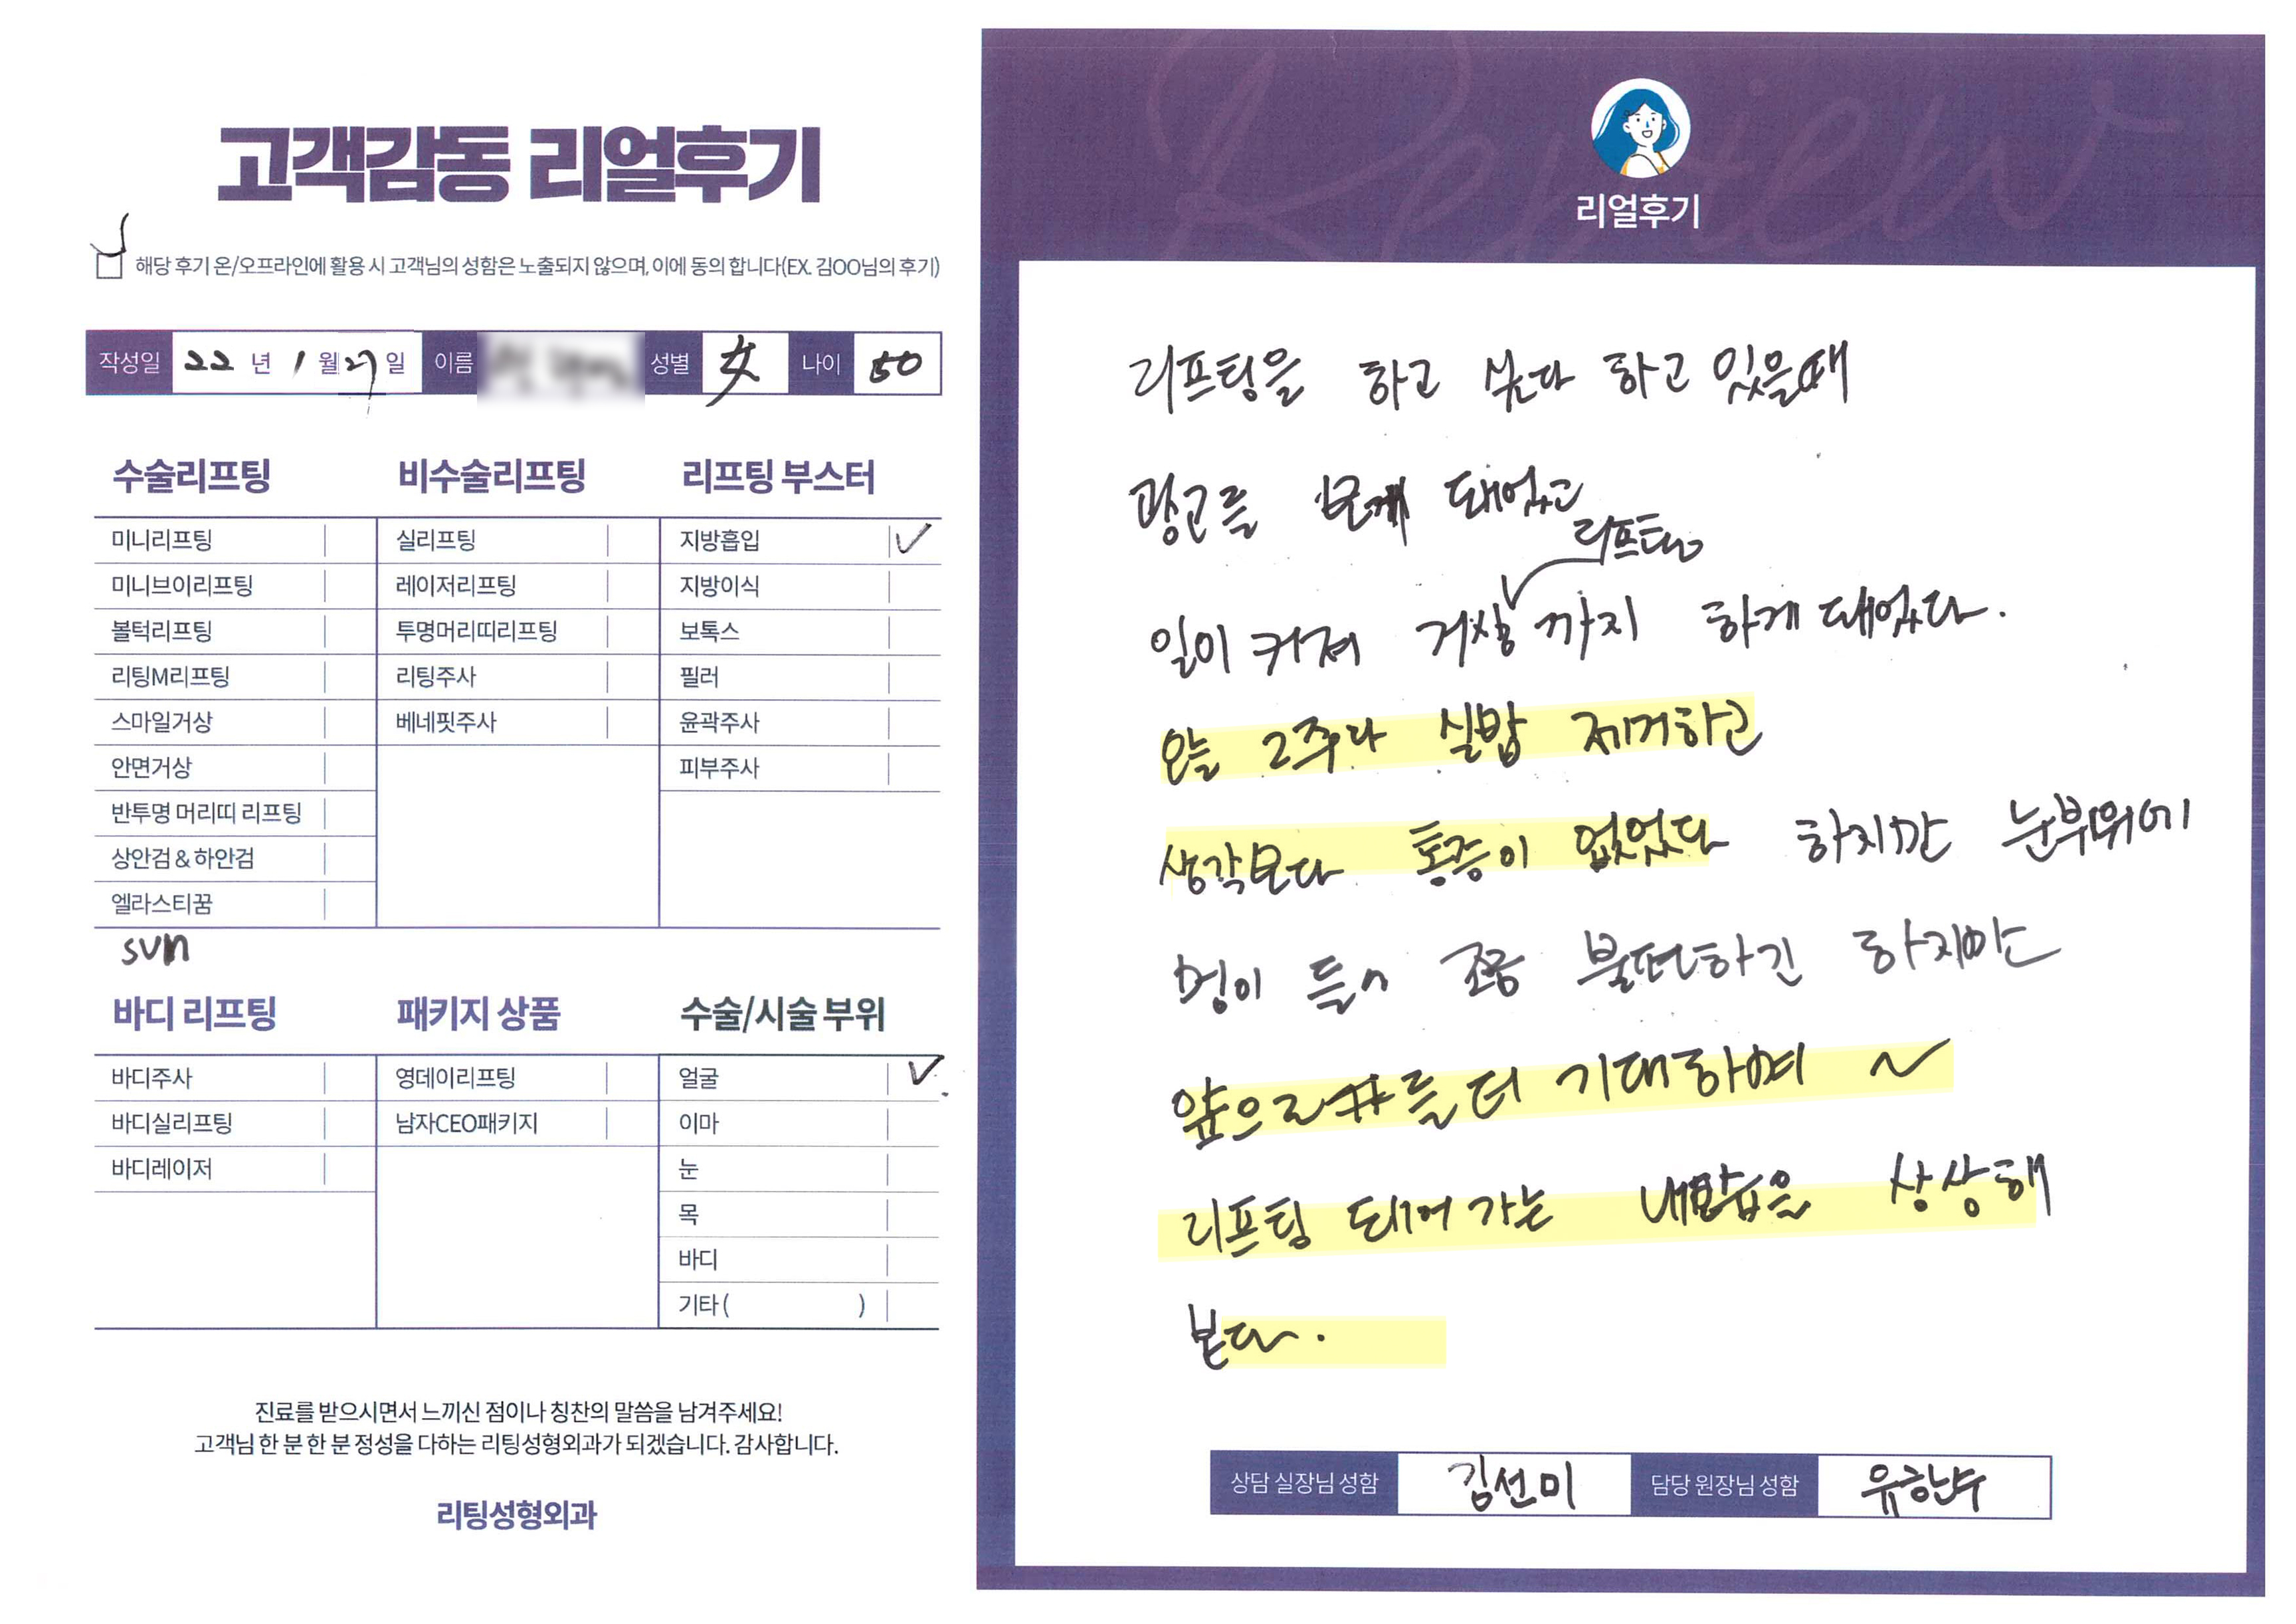 고객감동 리얼후기
해당 후기 온/오프라인에 활용 시 고객님의 성함은 노출되지 않으며, 이에 동의 합니다(EX. 김OO님의 후기)
작성일 22 년 1 월 27 일 이름 성별 女 나이 50
수술리프팅
미니리프팅
미니브이리프팅
볼턱리프팅
리팅M리프팅
스마일거상
안면거상
반투명 머리띠 리프팅
상안검 & 하안검
엘라스티꿈
svn
비수술리프팅
실리프팅
레이저리프팅
투명머리띠리프팅
리팅주사
베네핏주사
리프팅 부스터
지방흡입 ✓
지방이식
보톡스
필러
윤곽주사
피부주사
바디 리프팅
바디주사
바디실리프팅
바디레이저
패키지 상품
영데이리프팅
남자CEO패키지
수술/시술 부위
얼굴 ✓
이마
눈
목
바디
기타 ( )
진료를 받으시면서 느끼신 점이나 칭찬의 말씀을 남겨주세요!
고객님 한 분 한 분 정성을 다하는 리팅성형외과가 되겠습니다. 감사합니다.
리팅성형외과
Review
리얼후기
리프팅을 하고 싶다 하고 있을때
광고를 보게 돼었고
리프팅
일이 커져 거상 까지 하게 돼었다.
오늘 2주다 실밥 제거하고
생각보다 통증이 없었다 하지만 눈부위에
멍이 들어 조금 불편하긴 하지만
앞으로를 더 기대하며 ~
리프팅 되어 가는 내 모습을 상상해
본다.
상담 실장님 성함 김선미 담당 원장님 성함 유한수